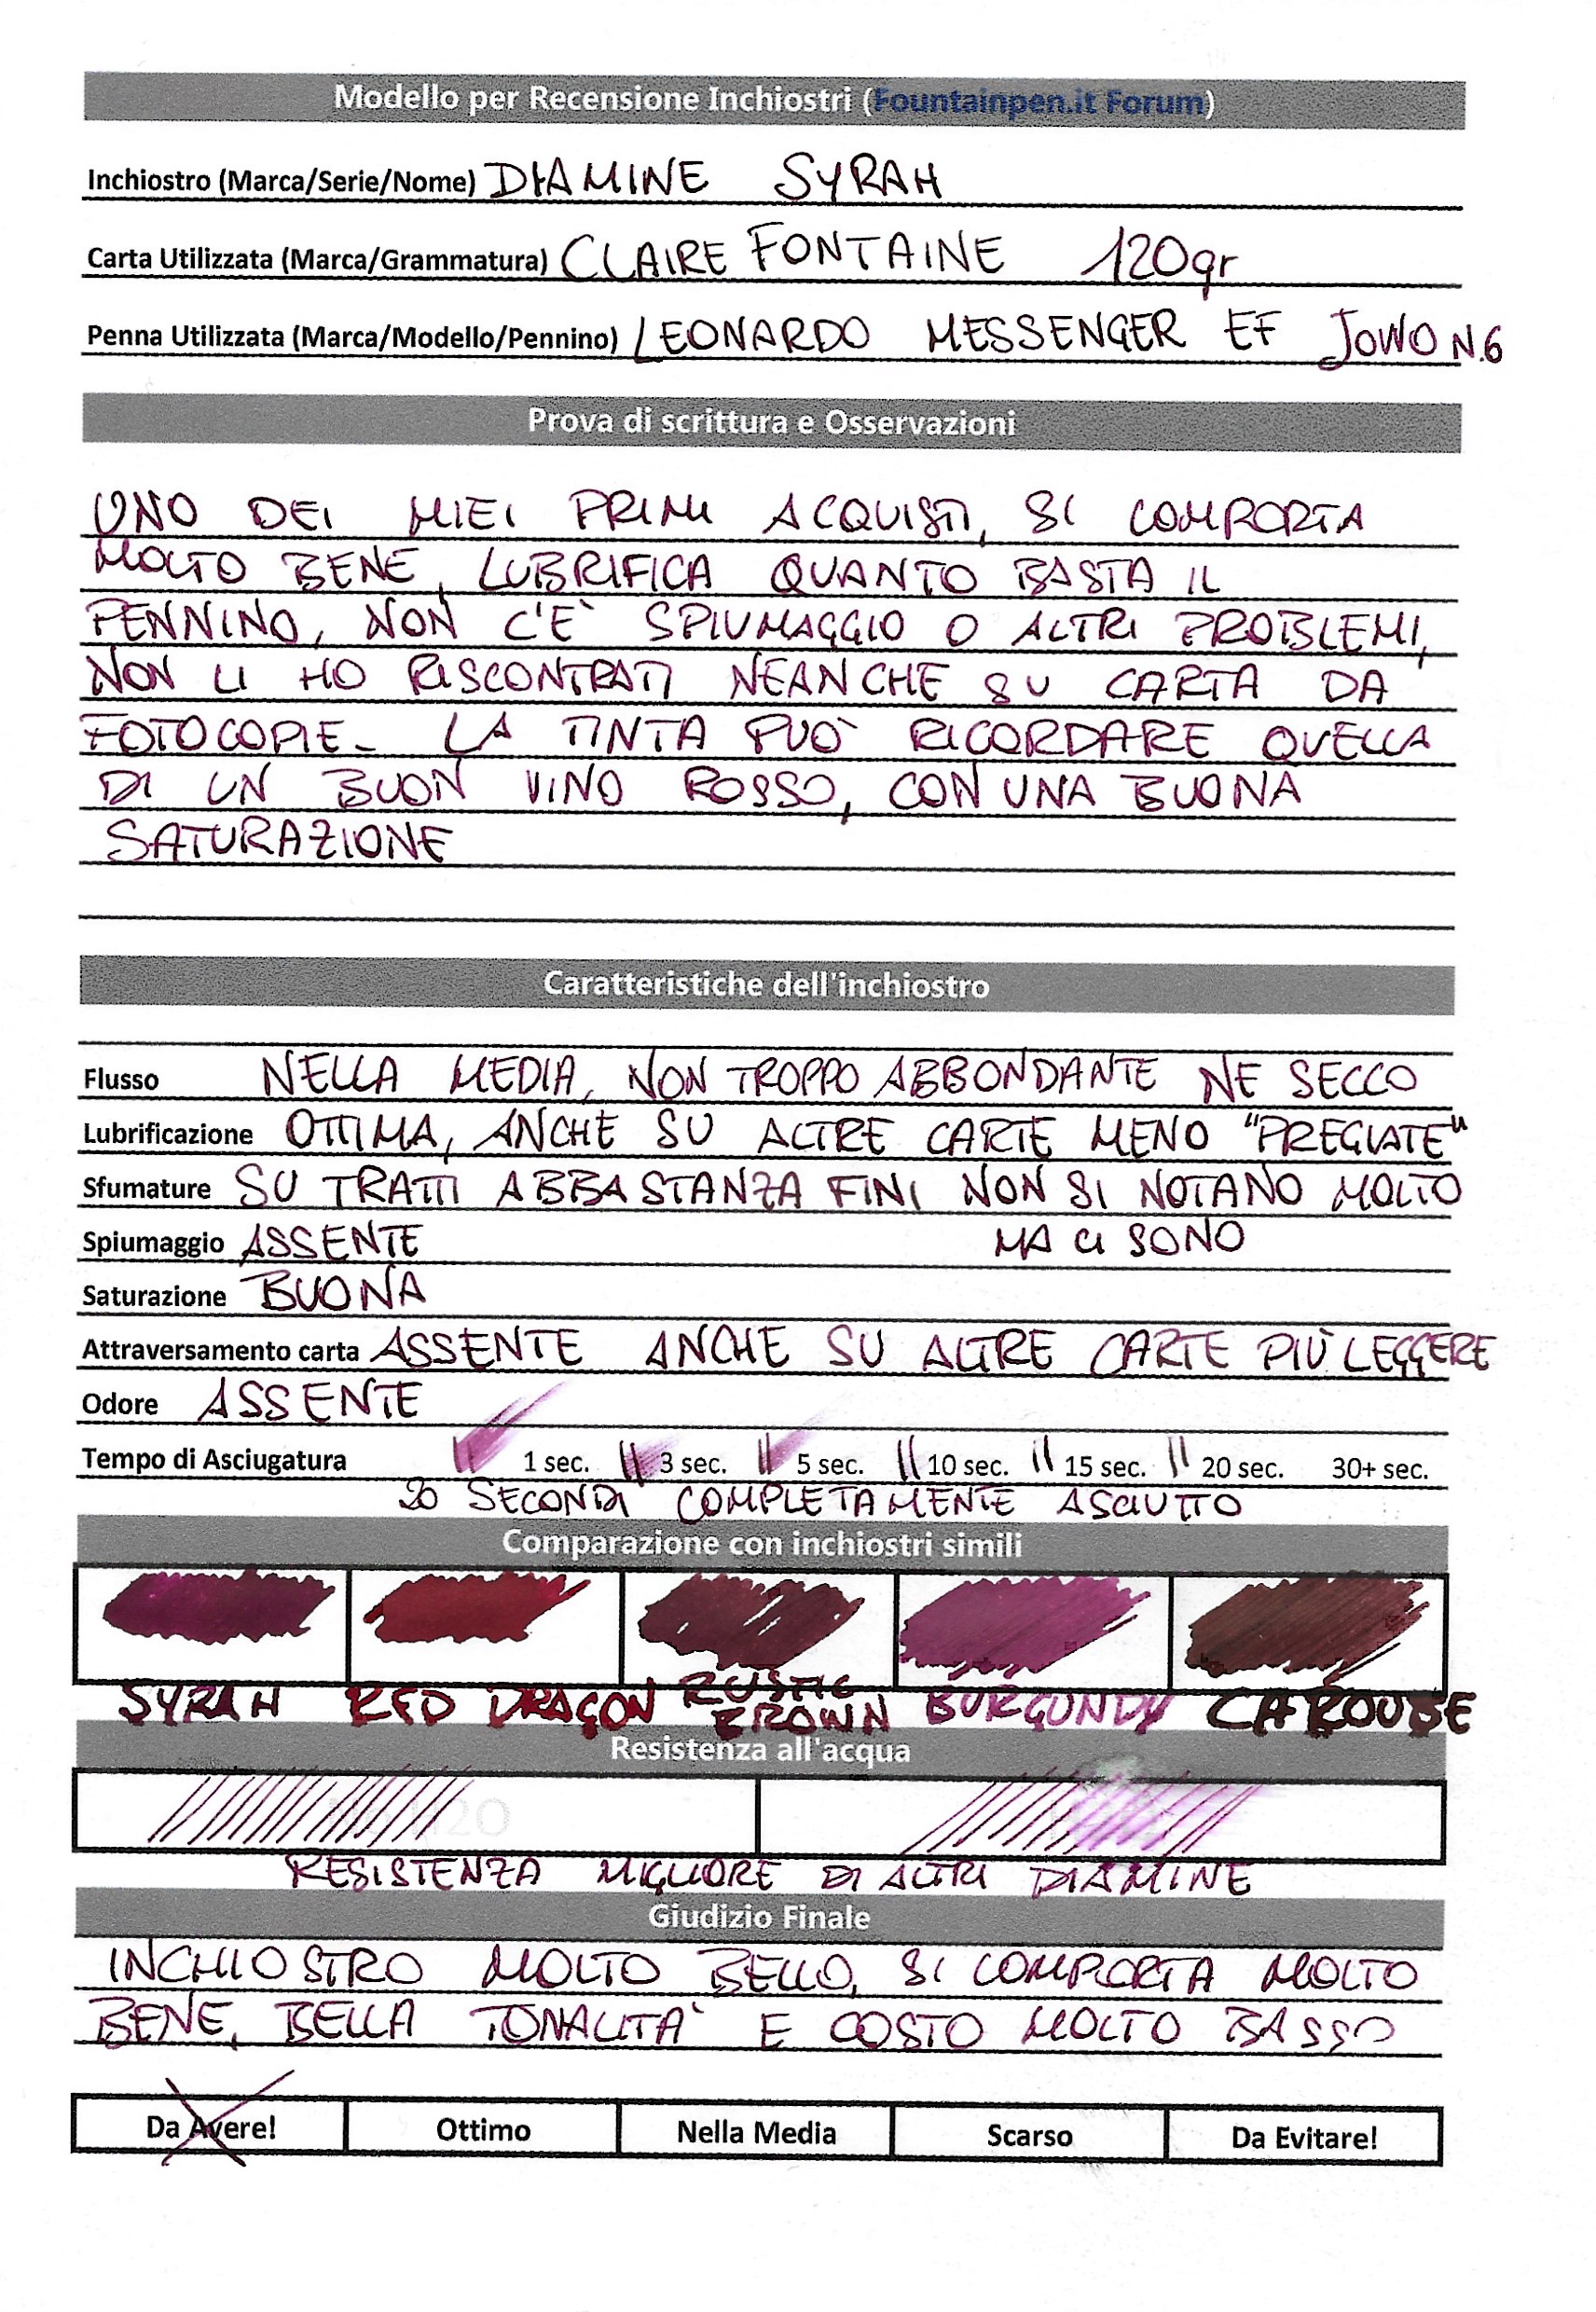 Modello per Recensione Inchiostri (Fountainpen.it Forum)
Inchiostro (Marca/Serie/Nome) DIAMINE SYRAH
Carta Utilizzata (Marca/Grammatura) CLAIRE FONTAINE 120gr
Penna Utilizzata (Marca/Modello/Pennino) LEONARDO MESSENGER EF JOWO N.6
Prova di scrittura e Osservazioni
UNO DEI MIEI PRIMI ACQUISTI, SI COMPORTA
MOLTO BENE, LUBRIFICA QUANTO BASTA IL
PENNINO, NON C'E' SPIUMAGGIO O ALTRI PROBLEMI,
NON LI HO RISCONTRATI NEANCHE SU CARTA DA
FOTOCOPIE. LA TINTA PUO' RICORDARE QUELLA
DI UN BUON VINO ROSSO, CON UNA BUONA
SATURAZIONE
Caratteristiche dell'inchiostro
Flusso NELLA MEDIA, NON TROPPO ABBONDANTE NE SECCO
Lubrificazione OTTIMA, ANCHE SU ALTRE CARTE MENO "PREGIATE"
Sfumature SU TRATTI ABBASTANZA FINI NON SI NOTANO MOLTO
Spiumaggio ASSENTE MA CI SONO
Saturazione BUONA
Attraversamento carta ASSENTE ANCHE SU ALTRE CARTE PIÙ LEGGERE
Odore ASSENTE
Tempo di Asciugatura 1 sec. 3 sec. 5 sec. 10 sec. 15 sec. 20 sec. 30+ sec.
20 SECONDI COMPLETAMENTE ASCIUTTO
Comparazione con inchiostri simili
SYRAH RED DRAGON RUSTIC BROWN BURGUNDY CAROUBE
Resistenza all'acqua
No H2O
RESISTENZA MIGLIORE DI ALTRI DIAMINE
Giudizio Finale
INCHIOSTRO MOLTO BELLO, SI COMPORTA MOLTO
BENE, BELLA TONALITA' E COSTO MOLTO BASSO
Da Avere! Ottimo Nella Media Scarso Da Evitare!